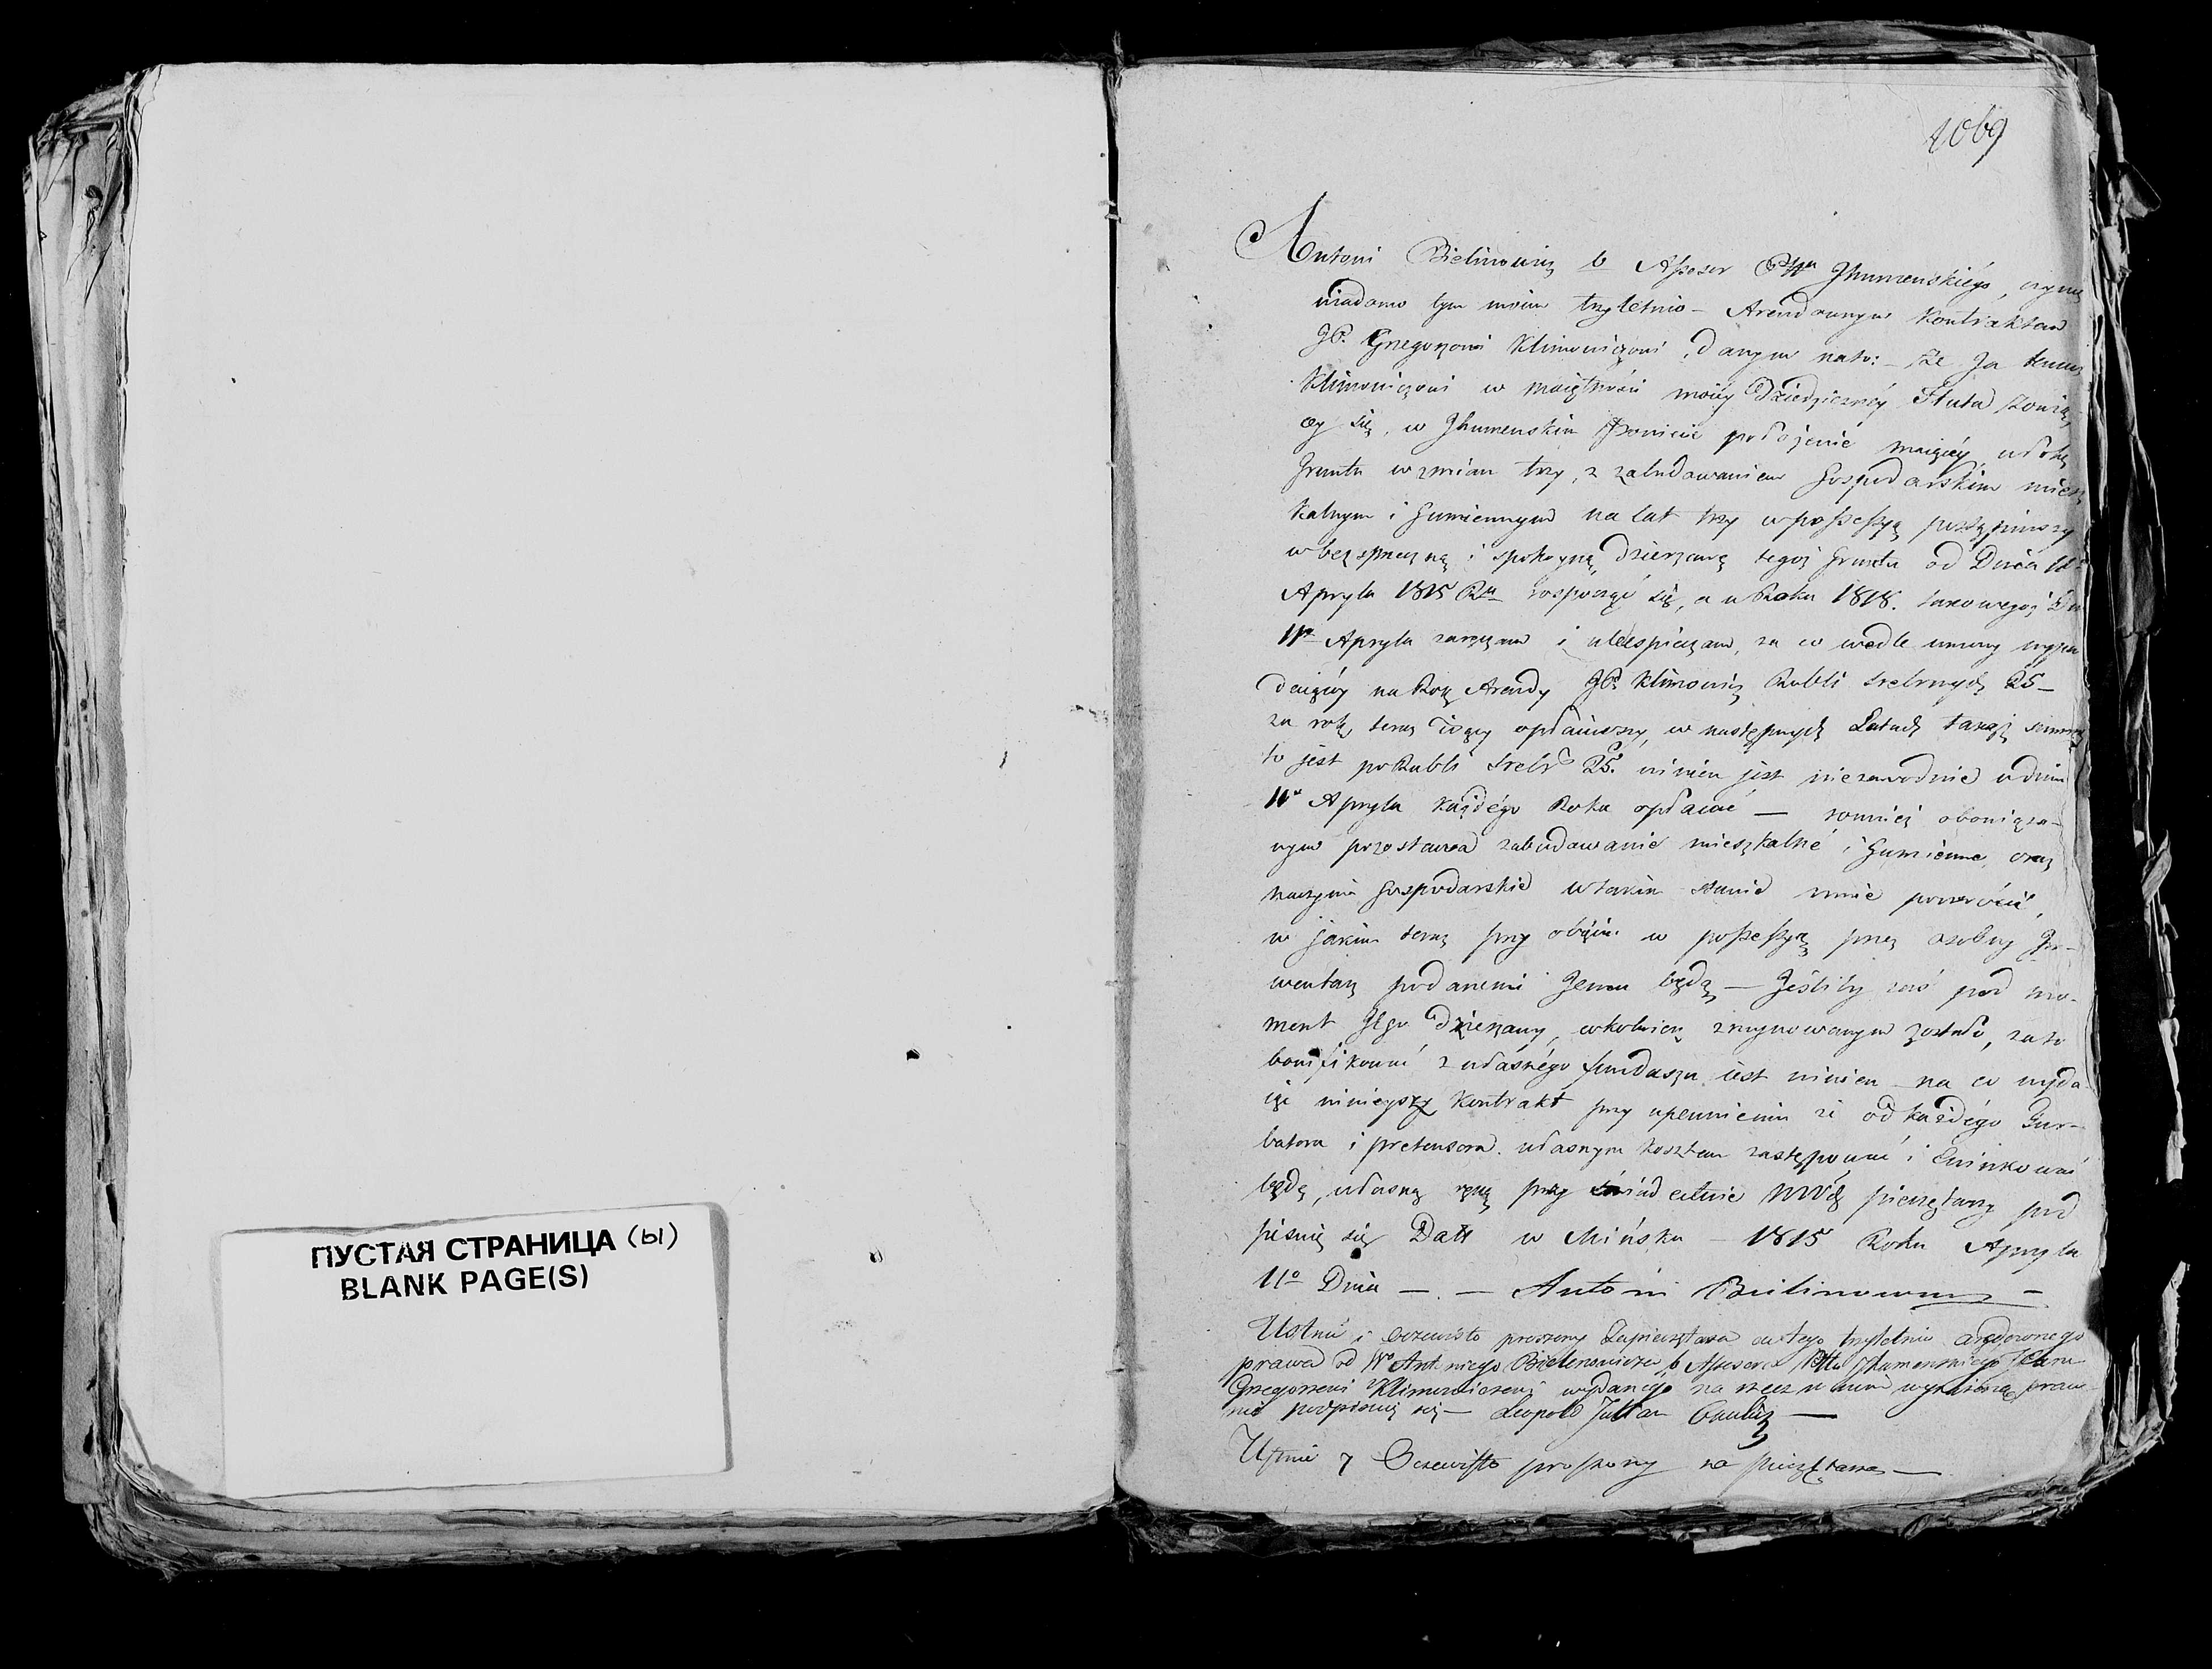 ПУСТАЯ СТРАНИЦА (ы)
BLANK PAGE(S)
1069
Antoni Bielinowicz b Assesor Pttu Jhumenskiégo, czynię
wiadomo tym moim trzyletnio - Arendownym Kontraktem
JP. Grzegorzowi Klimowiczowi, danym na to: - że Ja temuż
Klimowiczowi w maiętności moiéy Dziedziczney Huta zowią
cey się, w Jhumenskim Powiecie położenie maiącéy
Gruntu w zmian trzy, z zabudowaniem Gospodarskim miesz
kalnym i Gumiennym na lat trzy w possessyą postąpiwszy
w bezspieczną i spokoyną dzierżawę tegoż Gruntu od Dnia 11
Apryla 1815 Ru rospocząć się, a w Roku 1818. takowegoż Dn
11o Apryla i ubespieczam, za co wedle umowy
na Rok Arendy JP. Klimowicz Rubli srebrnych 25 -
za rok teraz idący opłaciwszy, w następnych Latach takąż summę
to jest po Rubli srebr 25. winien jest niezawodnie w dniu
11o Apryla każdégo Roku opłacać — rownież obowiąza-
nym przostawa zabudowanie mieszkalne i Gumienne, oraz
naczynia Gospodarskie w takim stanie mnie powrócić,
w jakim teraz przy obięciu w possessyą przez osobny In-
wentarz podanemi Jemu będą — Jeśliby zaś pod mo-
ment Jego dzierżawy, cokolwiek zruynowanym zostało, za to
bonifikować z własnégo funduszu iest winien — na co wyda-
iąc ninieyszy Kontrakt przy upewnieniu iż od każdégo Tur-
batora i pretensora własnym kosztem zastępować i ewinkować
będę, własną ręką przy świadectwie WWch pieczętarzy pod
pisuię się Datt w Mińsku - 1815 Roku Apryla
11o Dnia — . — Antoni Bielinowicz —
Ustnie i oczewisto proszony Zapieczętarza do tego trzyletnio arędownego
prawa od Wo Antoniego Bielenowicza b Assesora Pttu Jhumenskiego JPanu
Grzegorzowi Klimowiczowi wydanego na rzecz w nim wyrażoną praw-
nie podpisuię się — Leopold Julian
Ustnie y Oczewisto proszony za pieczętarza —